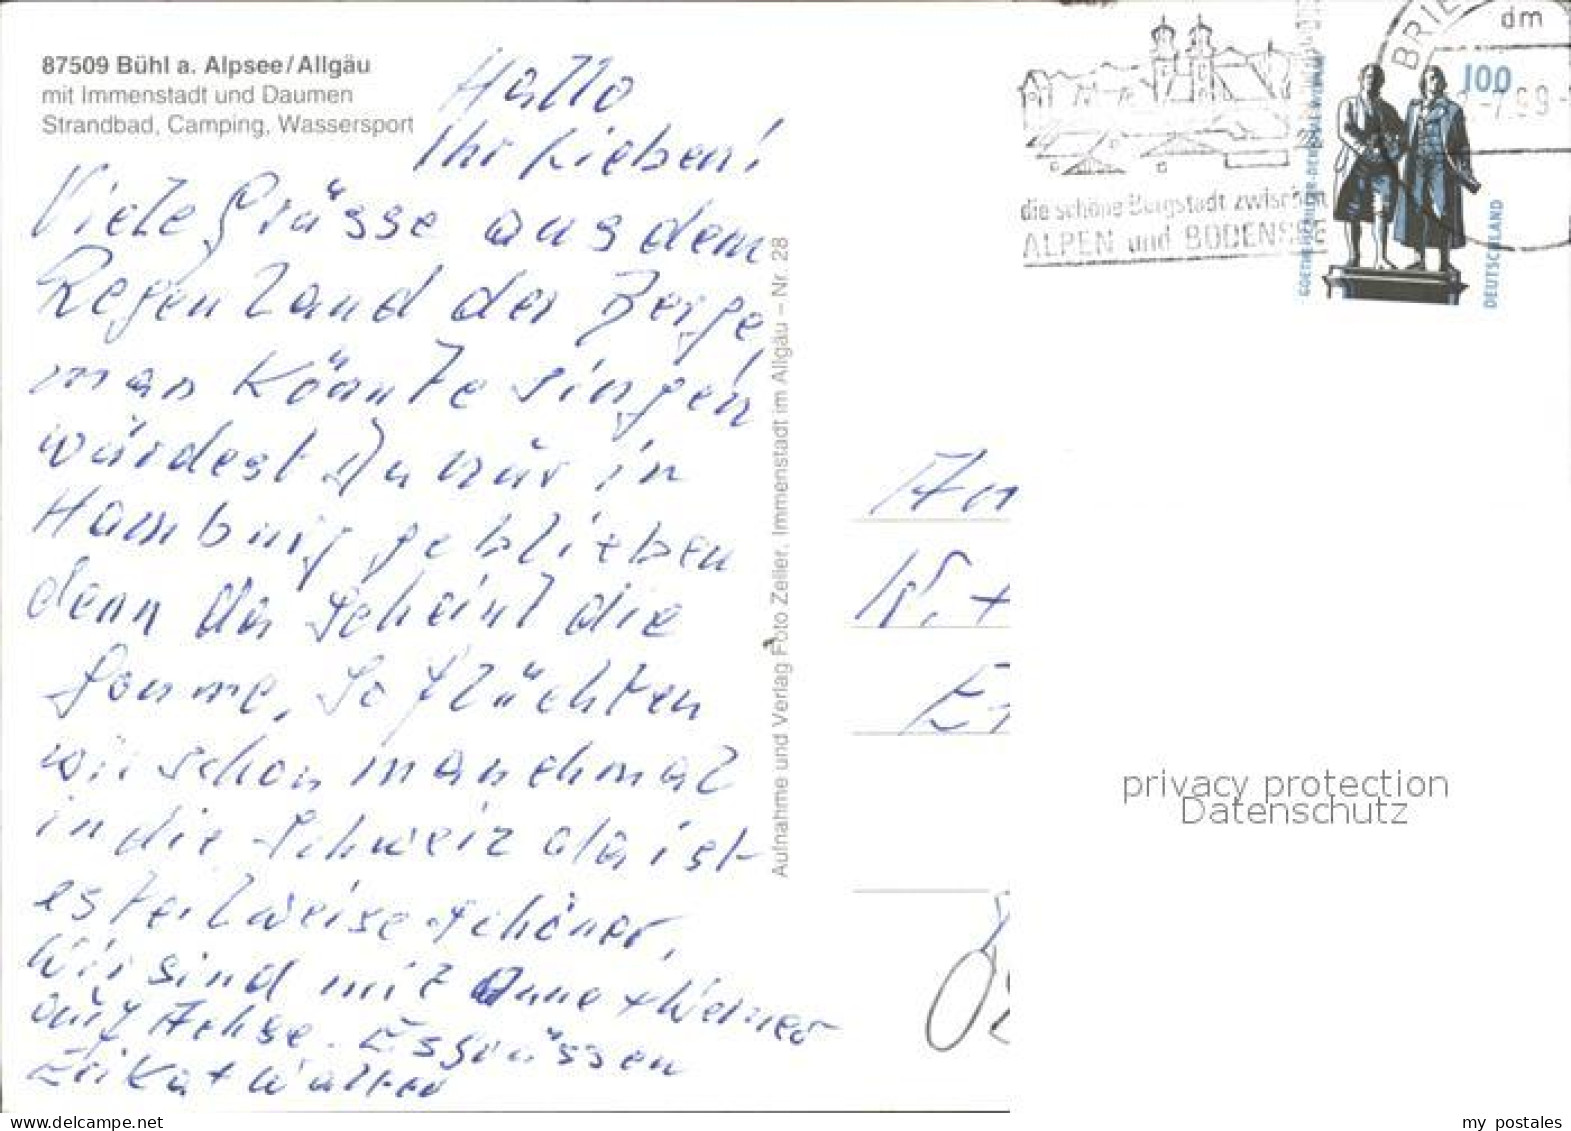 87509 Bühl a. Alpsee/Allgäu
mit Immenstadt und Daumen
Strandbad, Camping, Wassersport
Hallo
Ihr Lieben!
Viele Grüsse aus dem
Regenland der Berge,
man könnte singen
würdest Du nur in
Hamburg geblieben
denn da scheint die
Sonne. So flüchten
wir schon manchmal
in die Schweiz da ist
es teilweise schöner.
Wir sind mit Anne + Werner
auf Achse. Es grüssen
Erika + Walter
Aufnahme und Verlag Foto Zeller, Immenstadt im Allgäu – Nr. 28
die schöne Bergstadt zwischen
ALPEN und BODENSEE
BRIE
dm
100
DEUTSCHLAND
W. +
privacy protection
Datenschutz
my postales